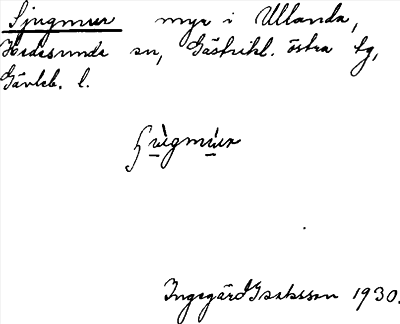 Sjugmur myr i Ullanda,
Hedesunda sn, Gästrikl. östra tg,
Gävleb. l.
Ingegärd Isaksson 1930.